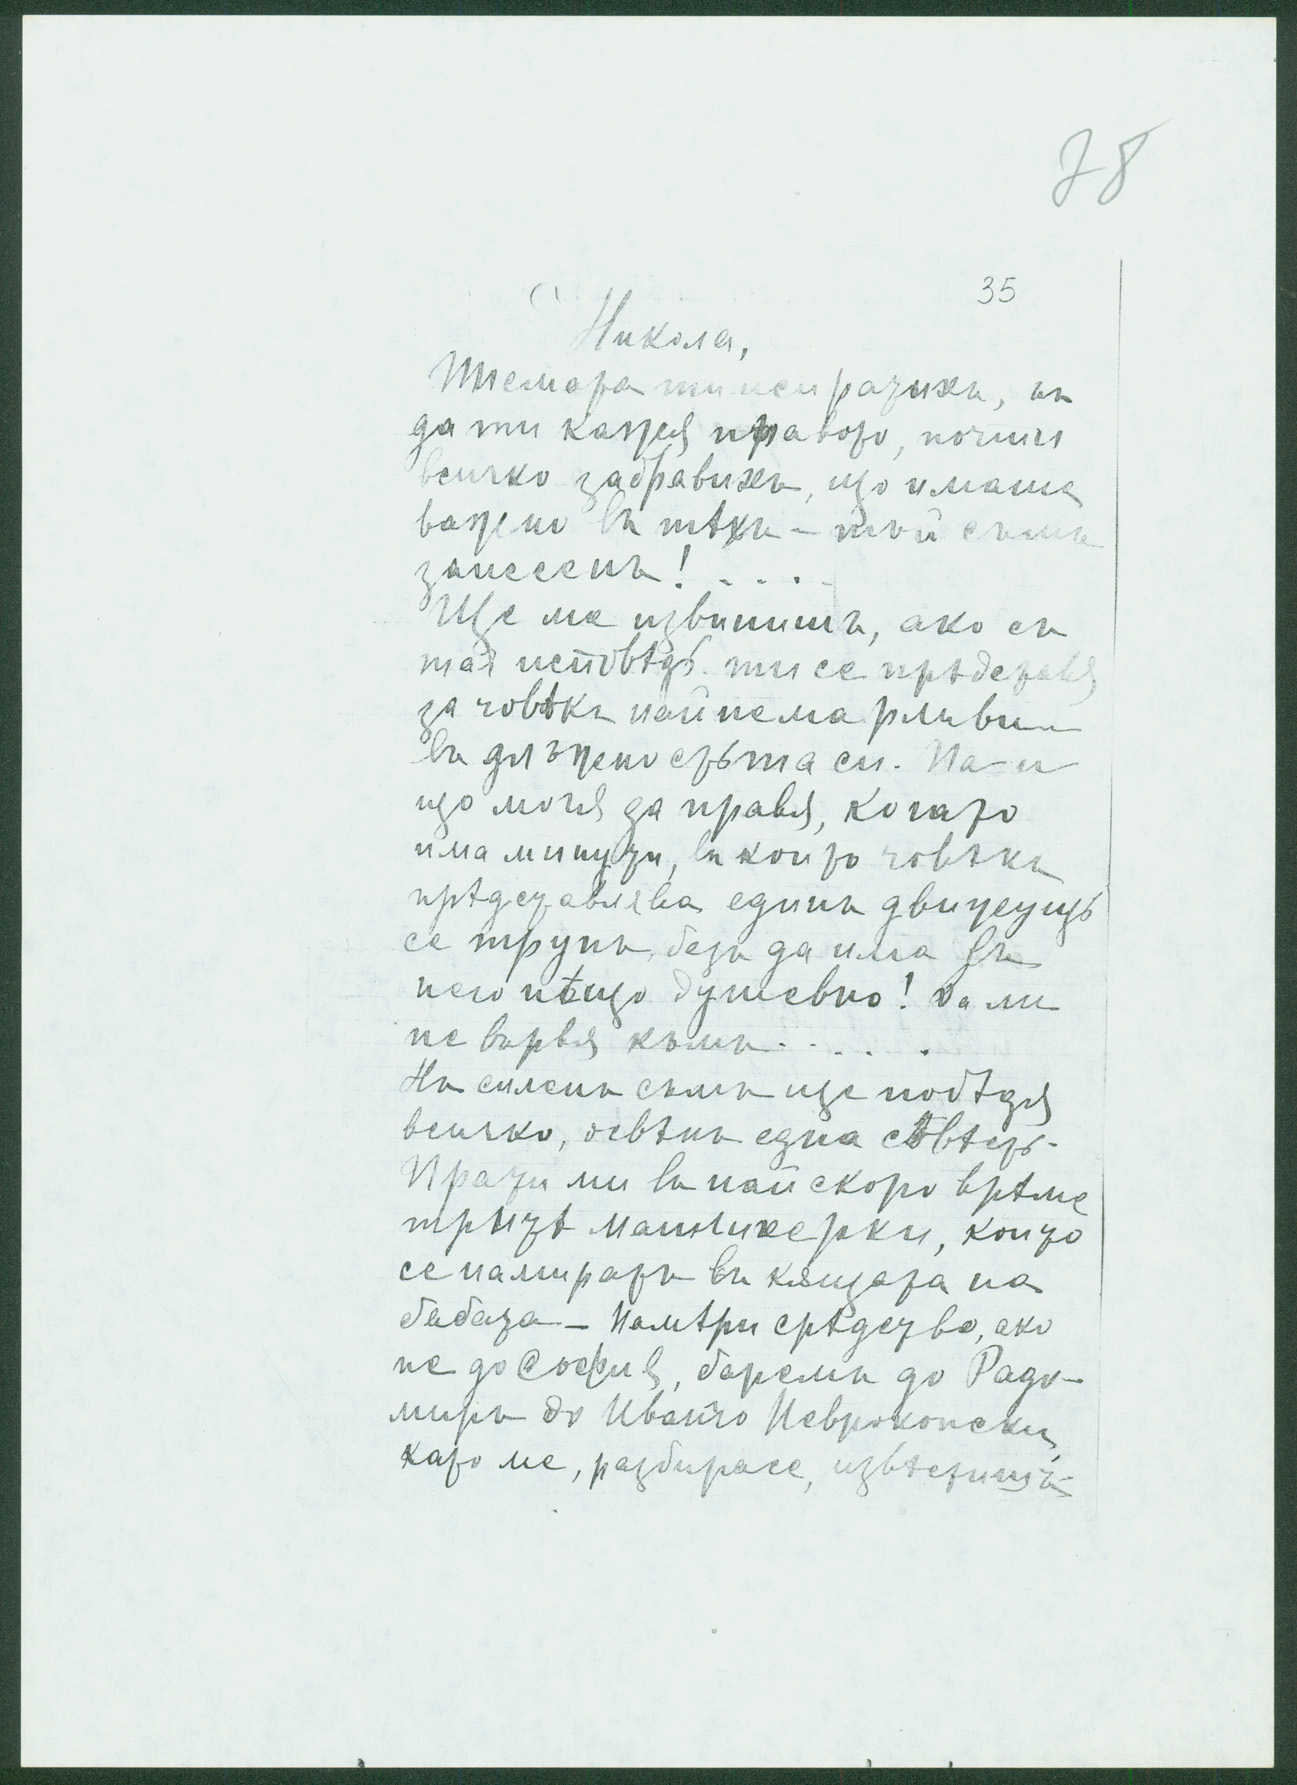 78
35
Никола,
Писмата ти испратихъ, нъ
да ти кажѫ правото, почти
всичко забравихъ, що имаше
важно въ тѣхъ – тъй съмъ
занесенъ! . . . .
Ще ме извинишъ, ако съ
тая исповѣдь ти се прѣдставѫ
за човѣкъ най немарливъ
въ длъжностьта си. На и
що могѫ да правѫ, когато
има минути, въ които човѣкъ
прѣдставлява единъ движущъ
се трупъ, безъ да има въ
него нѣщо душевно! Да ли
не варвѫ къмъ . . . . .
Нъ силенъ съмъ ще побѣдѫ
всичко, освѣнъ една съвѣсть.
Прати ми въ най скоро врѣме
тритѣ манлихерки, които
се намиратъ въ кѫщата на
бабата – Намѣри срѣдство, ако
не до Софиѫ, баремъ до Радо-
миръ до Иванчо Неврокопски,
като ме, разбирасе, извѣстишъ